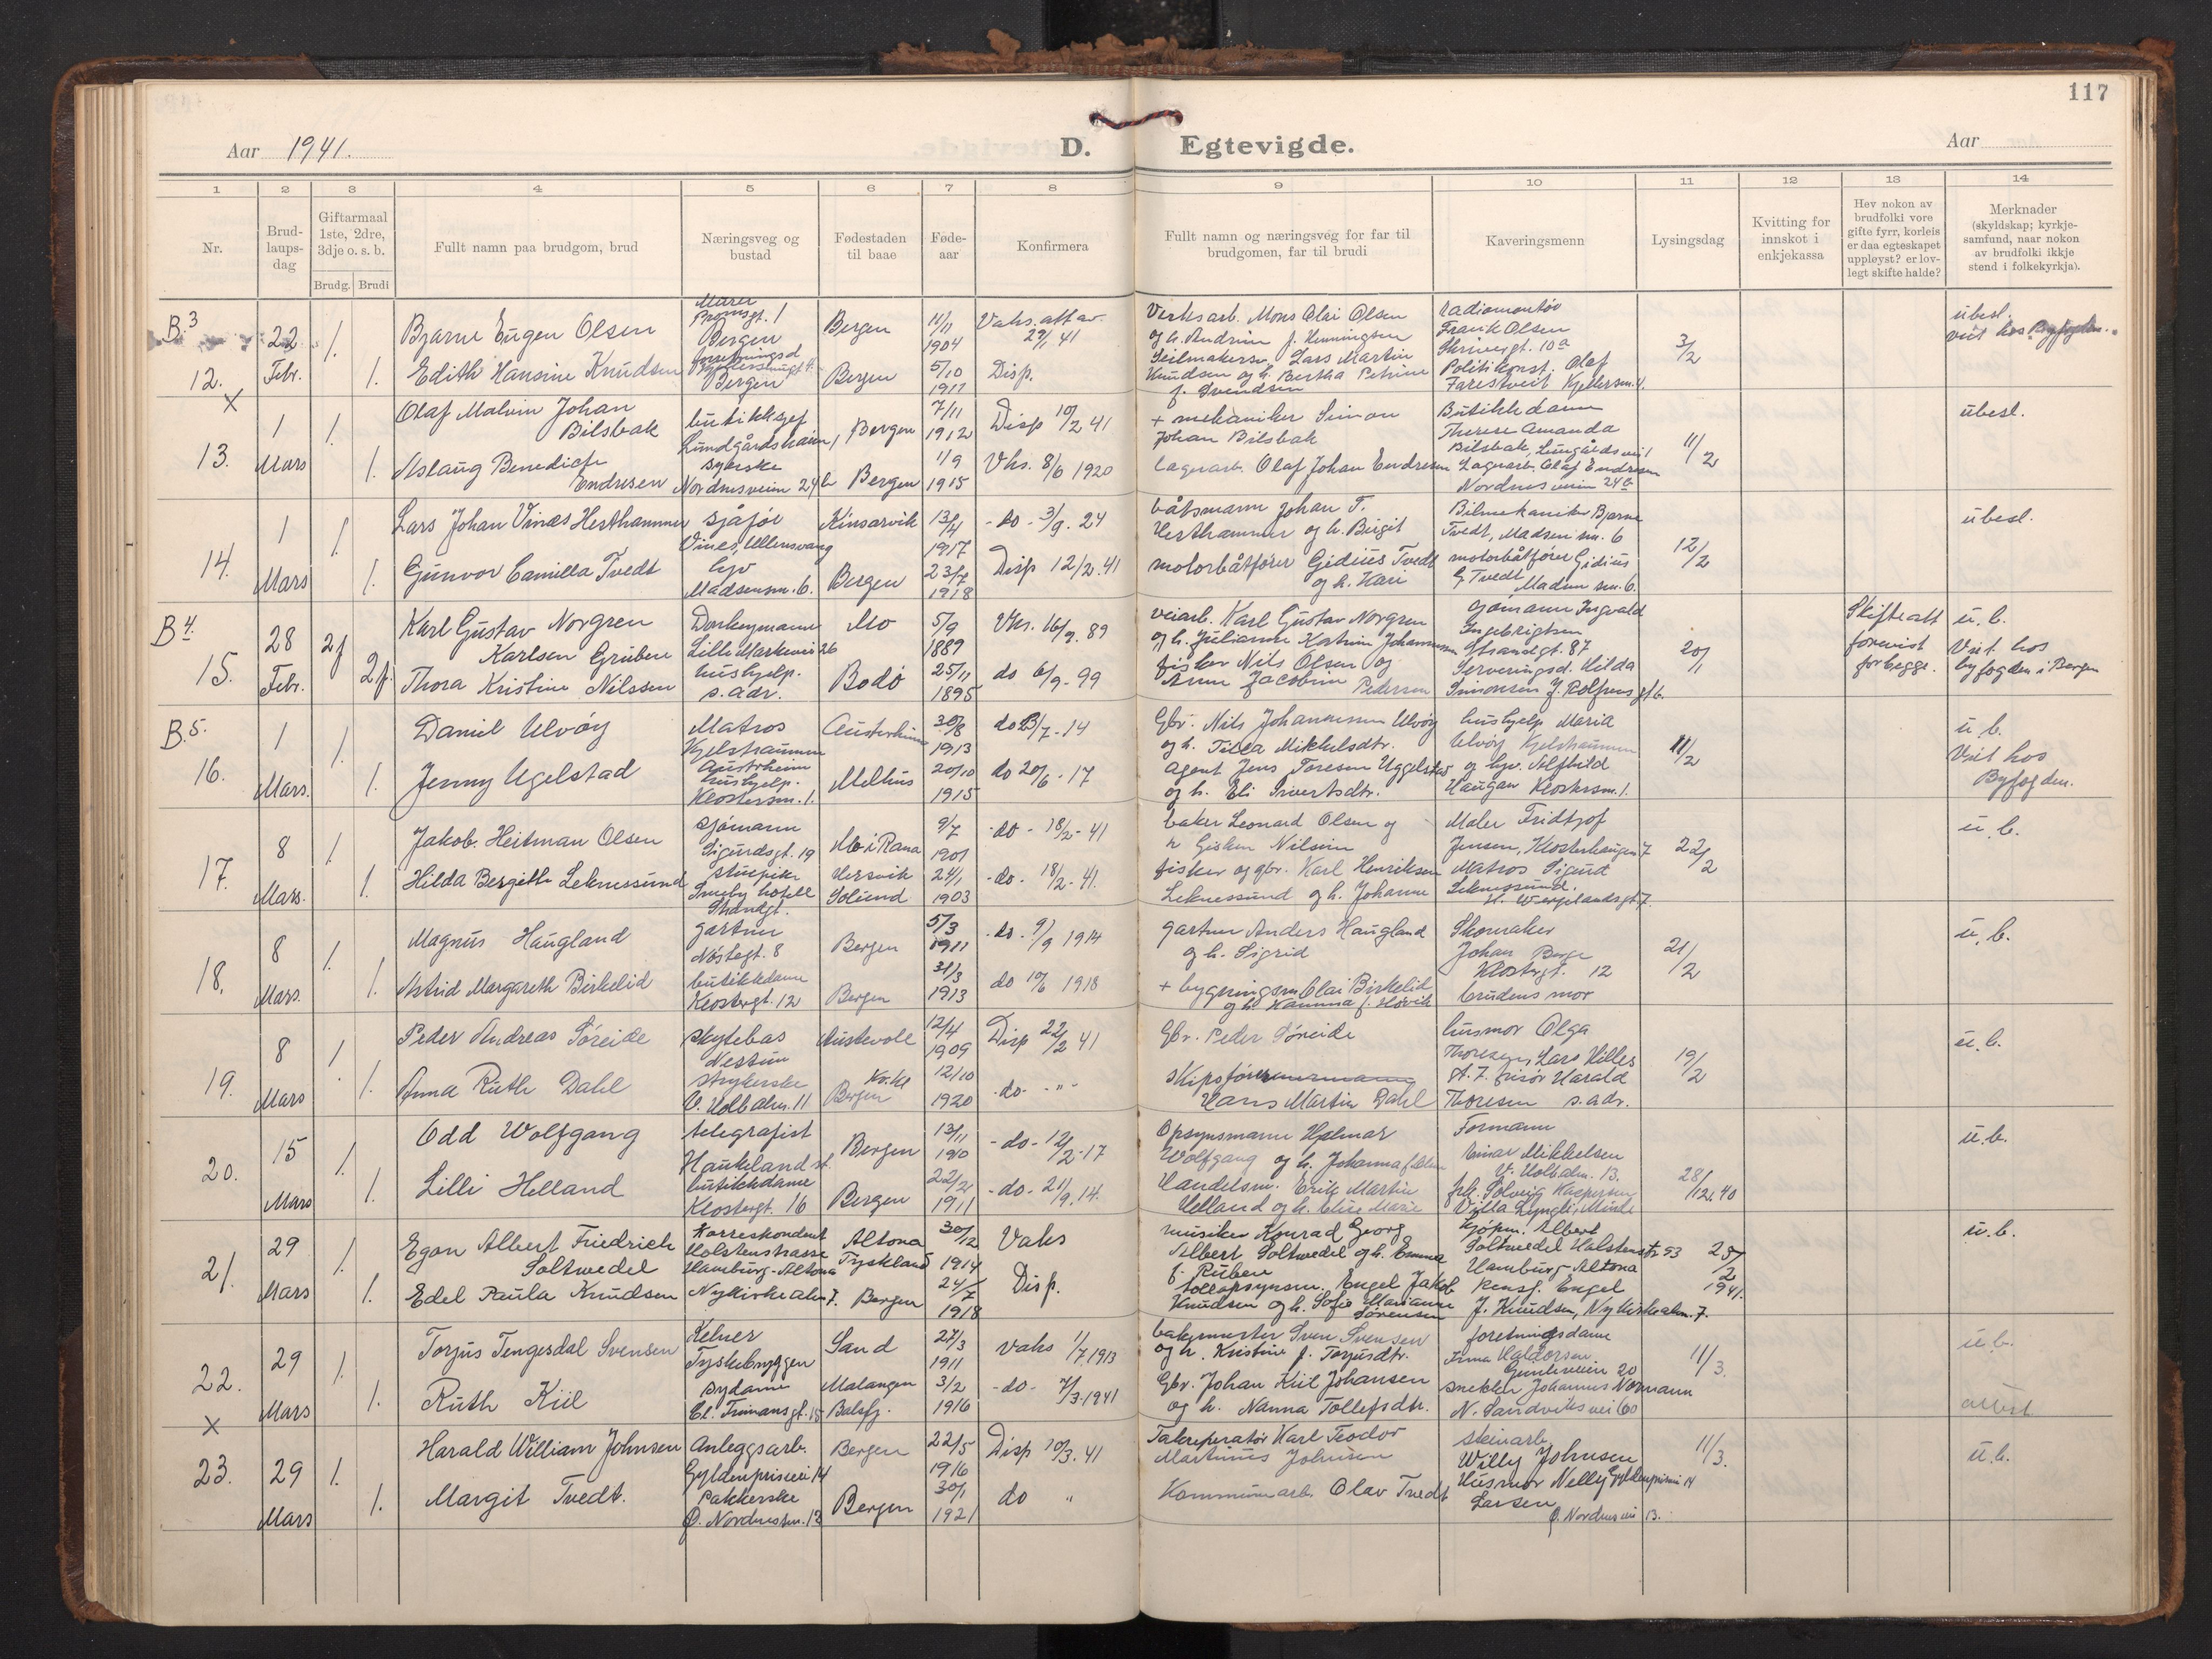 117
Aar 1941.
D. Egtevigde.
Aar
1 2 3 4 5 6 7 8 9 10 11 12 13 14
Nr.
Brud-
laups-
dag
Giftarmaal
1ste, 2dre,
3dje o. s. b.
Brudg. Brudi
Fullt namn paa brudgom, brud
Næringsveg og
bustad
Fødestaden
til baae
Føde-
aar
Konfirmera
Fullt namn og næringsveg for far til
brudgomen, far til brudi
Kaveringsmenn
Lysingsdag
Kvitting for
innskot i
enkjekassa
Hev nokon av
brudfolki vore
gifte fyrr, korleis
er daa egteskapet
uppløyst? er lov-
legt skifte halde?
Merknader
(skyldskap; kyrkje-
samfund, naar nokon
av brudfolki ikkje
stend i folkekyrkja).
B. 3
12.
22
Febr.
1.
1.
Bjarne Eugen Olsen
Edith Hansine Knudsen
Murer
gt. 1
Bergen
Bergen
Bergen
Bergen
11/11
1904
5/10
1911
Vaks. att av
29/1 41
Disp.
Verksarb. Mons Olai Olsen
og h. Andrine f. Henningsen
Seilmakersv. Lars Martin
Knudsen og h. Bertha Petrine
f. Svendsen
Radiomontør
Frank Olsen
Skrivergt. 10a
Politikonst. Olaf
Farestveit Kjellersm. 4.
3/2
ubesl.
viet hos Byfogden.
X
13.
1
Mars
1.
1.
Olaf Malvin Johan
Bilsbak
Aslaug Benedicte
Endresen
butikksjef
syerske
Nordnesveien 24b
Bergen
Bergen
7/11
1912
1/9
1915
Disp 10/2 41
Vks. 8/6 1920
+ mekaniker Simon
Johan Bilsbak
lagerarb. Olaf Johan Endresen
Butikkdame
Therese Amanda
Bilsbak, Lungårdsvei 1
Lagerarb. Olaf Endresen
Nordnesveien 24b
11/2
ubesl.
14.
1
Mars
1.
1.
Lars Johan Vines Hesthammer
Gunvor Camilla Tvedt
sjåfør
Vines, Ullensvang
hv
Madsensm. 6.
Kinsarvik
Bergen
13/4
1917
23/7
1918
- do - 3/9. 24
Disp 12/2. 41
båtsmann Johan T.
Hesthammer og h. Birgit
motorbåtfører Gidius Tvedt
og h. Kari
Bilmekaniker Bjarne
Tvedt, Madsen sm. 6
motorbåtfører Gidius
G Tvedt Madsen sm. 6.
12/2
ubesl.
B 4.
15.
28
Febr.
2f
2f.
Karl Gustav Norgren
Karlsen Gruben
Thora Kristine Nilssen
Donkeymann
Lille Markevei 26
hushjelp.
s. adr.
Mo
Bodø
5/9
1889
25/11
1895
Vks. 16/9. 89
do 6/9 - 99
veiarb. Karl Gustav Norgren
og h. Julianne Katrine Johannessen
fisker Nils Olsen og
Anne Jacobine Pedersen
sjømann Ingvald
Ingebrigtsen
Strandgt. 87
Serveringsd. Hilda
Simonsen J. Rolfsens gt 6.
20/1
Skifteatt
forevist
for begge.
u. b.
Viet hos
byfogden i Bergen
B. 5.
16.
1
Mars.
1.
1.
Daniel Ulvøy
Jenny Ugelstad
Matros
Kjelstraumen
Austrheim
hushjelp.
Klostersm. 1.
Austerheim
Melhus
30/8
1913
20/10
1915
do 13/7 - 14
do 20/6 - 17
Gbr. Nils Johannessen Ulvøy
og h. Tilla Mikkelsdtr.
agent Jens Toresen Uggelstad
og h. Eli Sivertsdtr.
hushjelp Maria
Ulvøy Kjelstraumen
og hv. Alfhild
Haugan Klostersm. 1.
11/2
u. b.
Viet hos
Byfogden.
17.
8
Mars.
1.
1.
Jakob Heitman Olsen
Hilda Bergitte Leknessund
sjømann
Sigurdsgt. 19
stuepike
Smeby hotell
Strandgt.
Mo i Rana
Hersvik
Solund
9/7
1901
24/1
1903
- do - 18/2 - 41
- do - 18/2 - 41.
baker Leonard Olsen og
h Gisken Nilsine
fisker og gbr. Karl Henriksen
Leknessund og h. Johanne
Maler Fridtjof
Jensen, Klosterhaugen 7
Matros Sigurd
Leknessund.
H. Wergelandsgt. 7.
22/2
u. b.
18.
8
Mars.
1.
1.
Magnus Haugland
Astrid Margareth Birkelid
gartner
Nøstegt. 8
butikkdame
Klostergt. 12
Bergen
Bergen
5/3
1911
31/3
1913
- do - 9/9 1914
do 10/6 1918
gartner Anders Haugland
og h. Sigrid
+ bygningsm Olai Birkelid
og h. Hanna f. Høvik
Skomaker
Johan Berge
Klostergt. 12
brudens mor
21/2
u. b.
19.
8
Mars
1.
1.
Peder Andreas Søreide
Anna Ruth Dahl
skytebas
Nestun
strykerske
V. Holbalm. 11
Austevoll
Kr.kl
Bergen
12/4
1909
12/10
1920
Disp 22/2 41
- do - - " -
Gbr. Peder Søreide
Skipsfører
Hans Martin Dahl
husmor Olga
Thoresen, Lars Hilles
gt. 7. frisør Harald
Thoresen s. adr.
19/2
u. b.
20.
15
Mars
1.
1.
Odd Wolfgang
Lilli Helland
telegrafist
Haukeland st.
butikkdame
Klostergt. 16
Bergen
Bergen
13/11
1910
22/2
1911
- do - 12/2 - 17
- do - 21/9. 14.
Opsynsmann Hjalmar
Wolfgang og h. Johanna
Handelsm. Erik Martin
Helland og h. Elise Marie
Formann
Einar Mikkelsen
V. Holbalm. 13.
frk. Solveig Kaspersen
Villa Lyngli, Minde
28/12. 40
u. b.
21.
29
Mars
1.
1.
Egon Albert Friedrich
Soltwedel
Edel Paula Knudsen
Korrespondent
Holstenstrasse
Hamburg-Altona
Nykirkealm 7.
Altona
Tyskland
Bergen
30/12
1914
24/7
1918
Vaks
Disp.
musiker Konrad Georg
Albert Soltwedel og h. Emma
f. Ruben
tollopsynsm. Engel Jakob
Knudsen og h. Sofie Marianne
Sørensen
kjøpm. Albert
Soltwedel Holstenstr 93
Hamburg-Altona
Pens. Engel
J. Knudsen, Nykirkealm. 7.
25/2
1941.
u. b.
22.
29
Mars
1.
1.
Torjus Tengesdal Svensen
Ruth Kiil
Kelner
Tyskebryggen
sydame
Cl. Frimansgt. 15
Sand
Malangen
Balsfj.
27/3
1911
3/2
1916
Vaks 1/7. 1913
- do - 7/3. 1941
bakermester Sven Svensen
og h. Kristine f. Torjusdtr.
Gbr. Johan Kiil Johansen
og h. Nanna Tollefsdtr.
forretningsdame
Irma Haldorsen
20
snekker Johannes Normann
N. Sandviksvei 60
11/3.
u. b.
attest
X
23.
29
Mars
1.
1.
Harald William Johnsen
Margit Tvedt.
Anleggsarb.
Gyldenprisvei 14
Pakkerske
Ø. Nordnessm. 13
Bergen
Bergen
22/5
1916
30/1
1921
Disp 10/3. 41
do "
Takreperatør Karl Teodor
Martinus Johnsen
Kommunearb. Olav Tvedt
skinarb.
Willy Johnsen
Gyldenprisvei 14
Husmor Nelly
Larsen
Ø. Nordnesvei 13.
11/3.
u. b.